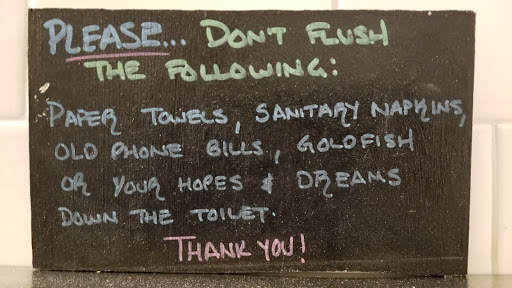 PLEASE... DON'T FLUSH
THE FOLLOWING:
PAPER TOWELS, SANITARY NAPKINS,
OLD PHONE BILLS, GOLDFISH
OR YOUR HOPES & DREAMS
DOWN THE TOILET.
THANK YOU!